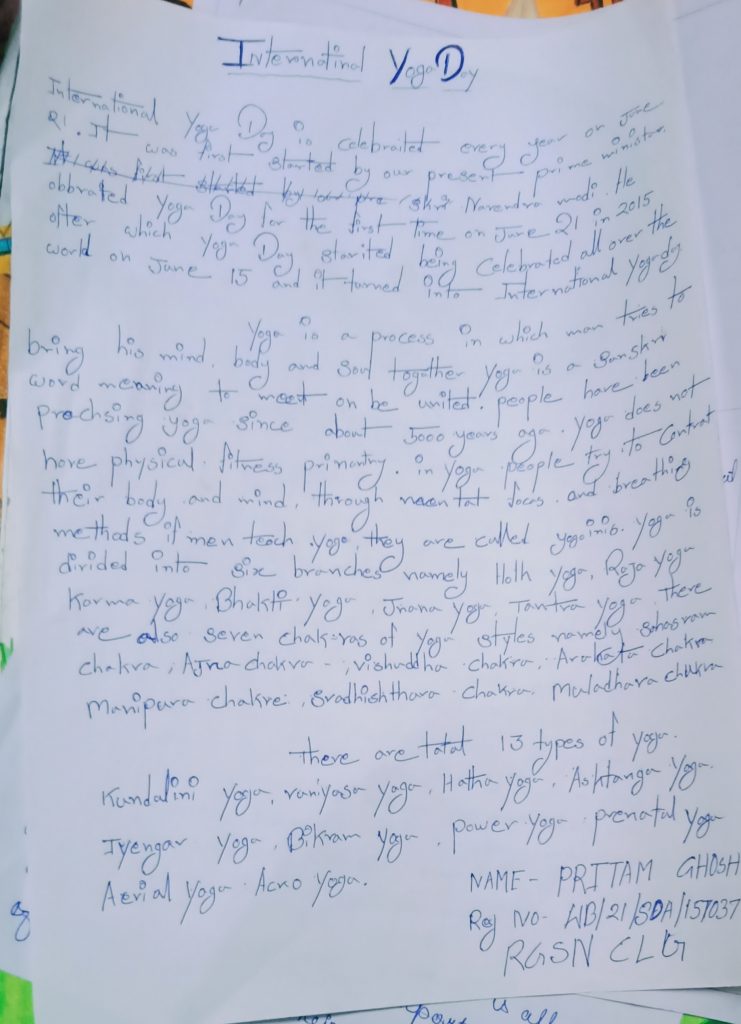 Internatinal Yoga Day
International Yoga Day is celebraited every year on June
21. It was first started by our present prime minister
shri Narendra modi. He
obbrated Yoga Day for the first time on June 21 in 2015
after which Yoga Day starited being Celebrated all over the
world on June 15 and it turned into International Yogaday
Yoga is a process in which man tries to
bring his mind, body and soul together Yoga is a Sanskri
word meaning to meet on be united. people have been
prachsing yoga since about 5000 years aga. Yoga does not
have physical fitness primantry. in Yoga people try to Contrat
their body and mind, through focas and breathing
methods if men teach yoga, they are called yogainis. Yoga is
divided into six branches namely Hoth Yoga, Raja Yoga
Karma Yoga, Bhakti Yoga, Jnana Yoga, Tantra Yoga There
are also seven chakras of Yoga styles namely Sahasram
chakra, Ajna chakra -, vishuddha chakra, Arakata Chakra
Manipura chakre, Sradhishthara chakra, Muladhara chakra
There are tatat 13 types of yoga.
Kundalini Yoga, vaniyasa yoga, Hatha Yoga, Ashtanga Yoga.
Iyengar Yoga, Bikram Yoga, power Yoga prenatal Yoga
Aerial Yoga. Acro Yoga.
NAME- PRITTAM GHOSH
Reg NO- WB/21/SDA/157037
RGSN CLG
is all